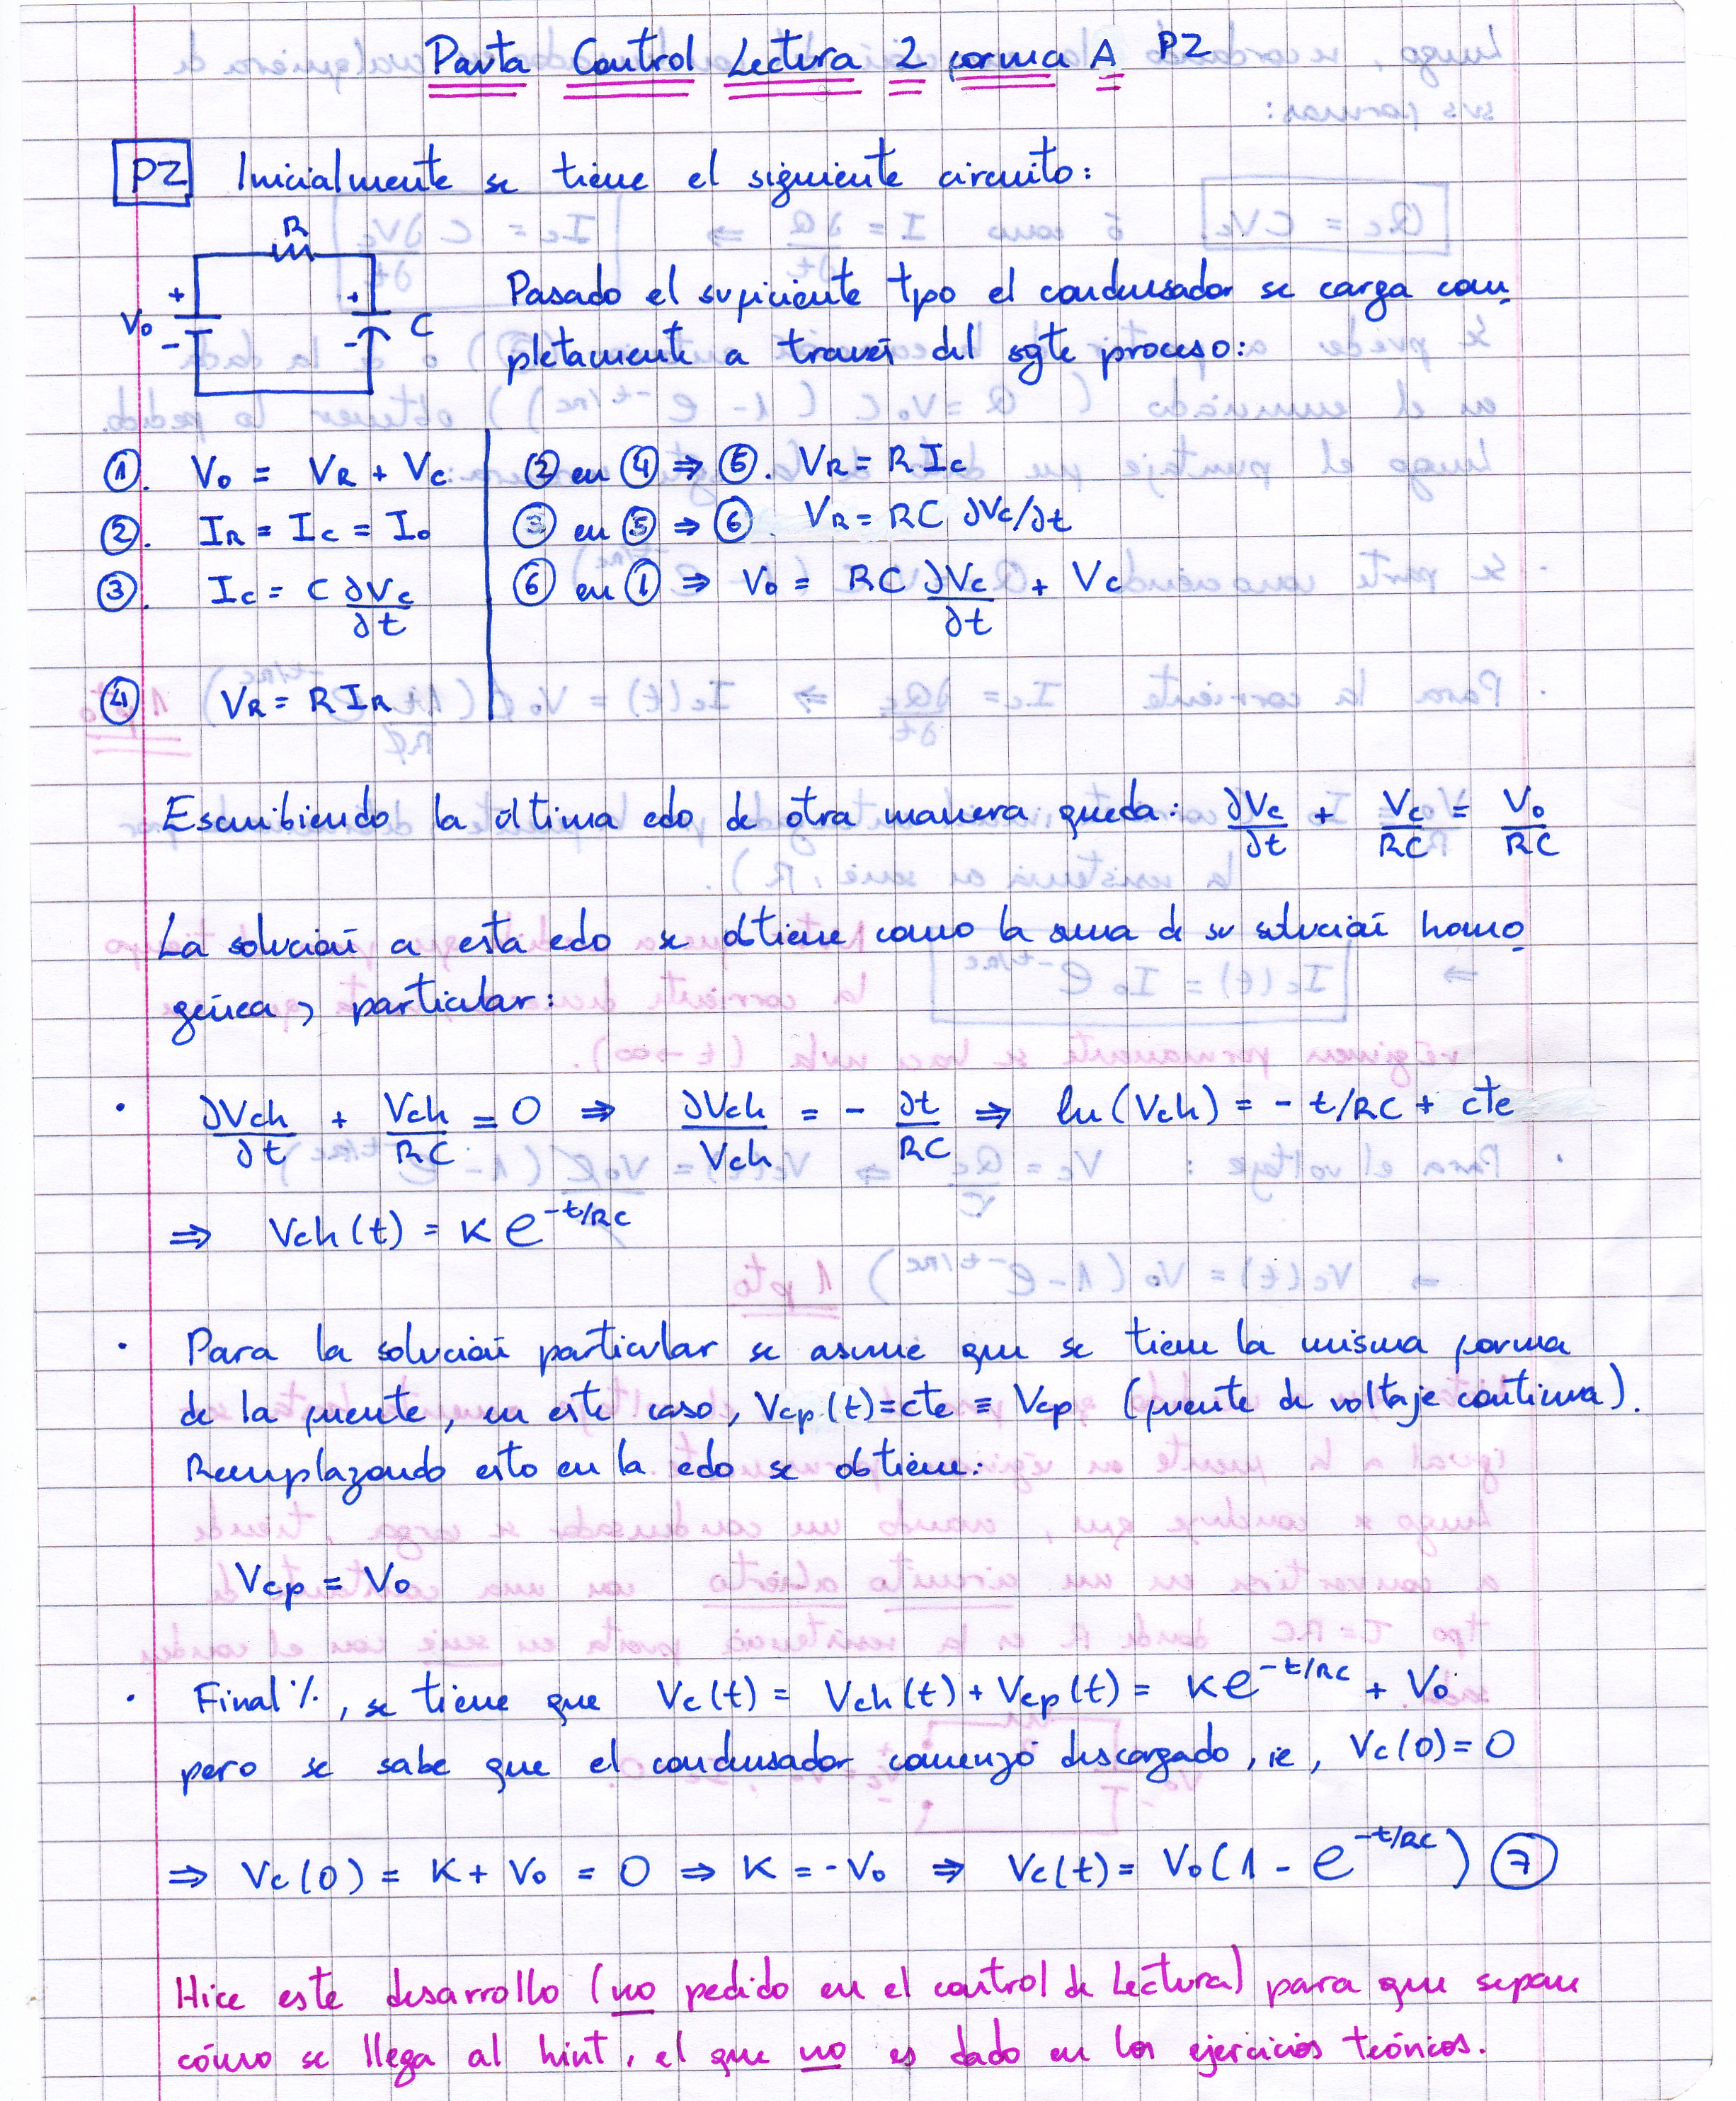 Pauta Control Lectura 2 forma A P2
P2 Inicialmente se tiene el siguiente circuito:
R
+ +
V₀ C
- -
Pasado el suficiente tpo el condensador se carga com
pletamente a través del sgte proceso:
①. V₀ = V_R + V_C
②. I_R = I_C = I₀
③. I_C = C ∂V_C/∂t
④ V_R = R I_R
② en ④ ⇒ ⑤. V_R = R I_C
③ en ⑤ ⇒ ⑥. V_R = RC ∂V_C/∂t
⑥ en ① ⇒ V₀ = RC ∂V_C/∂t + V_C
Escribiendo la última edo de otra manera queda: ∂V_C/∂t + V_C/RC = V₀/RC
La solución a esta edo se obtiene como la suma de su solución homo
génea y particular:
· ∂V_ch/∂t + V_ch/RC = 0 ⇒ ∂V_ch/V_ch = - ∂t/RC ⇒ ln(V_ch) = - t/RC + cte
⇒ V_ch(t) = K e^{-t/RC}
· Para la solución particular se asume que se tiene la misma forma
de la fuente, en este caso, V_cp(t) = cte ≡ V_cp (fuente de voltaje continua).
Reemplazando esto en la edo se obtiene:
V_cp = V₀
· Final %, se tiene que V_c(t) = V_ch(t) + V_cp(t) = K e^{-t/RC} + V₀
pero se sabe que el condensador comenzó descargado, ie, V_c(0) = 0
⇒ V_c(0) = K + V₀ = 0 ⇒ K = -V₀ ⇒ V_c(t) = V₀(1 - e^{-t/RC}) ⑦
Hice este desarrollo (no pedido en el control de Lectura) para que sepan
cómo se llega al hint, el que no es dado en los ejercicios teóricos.